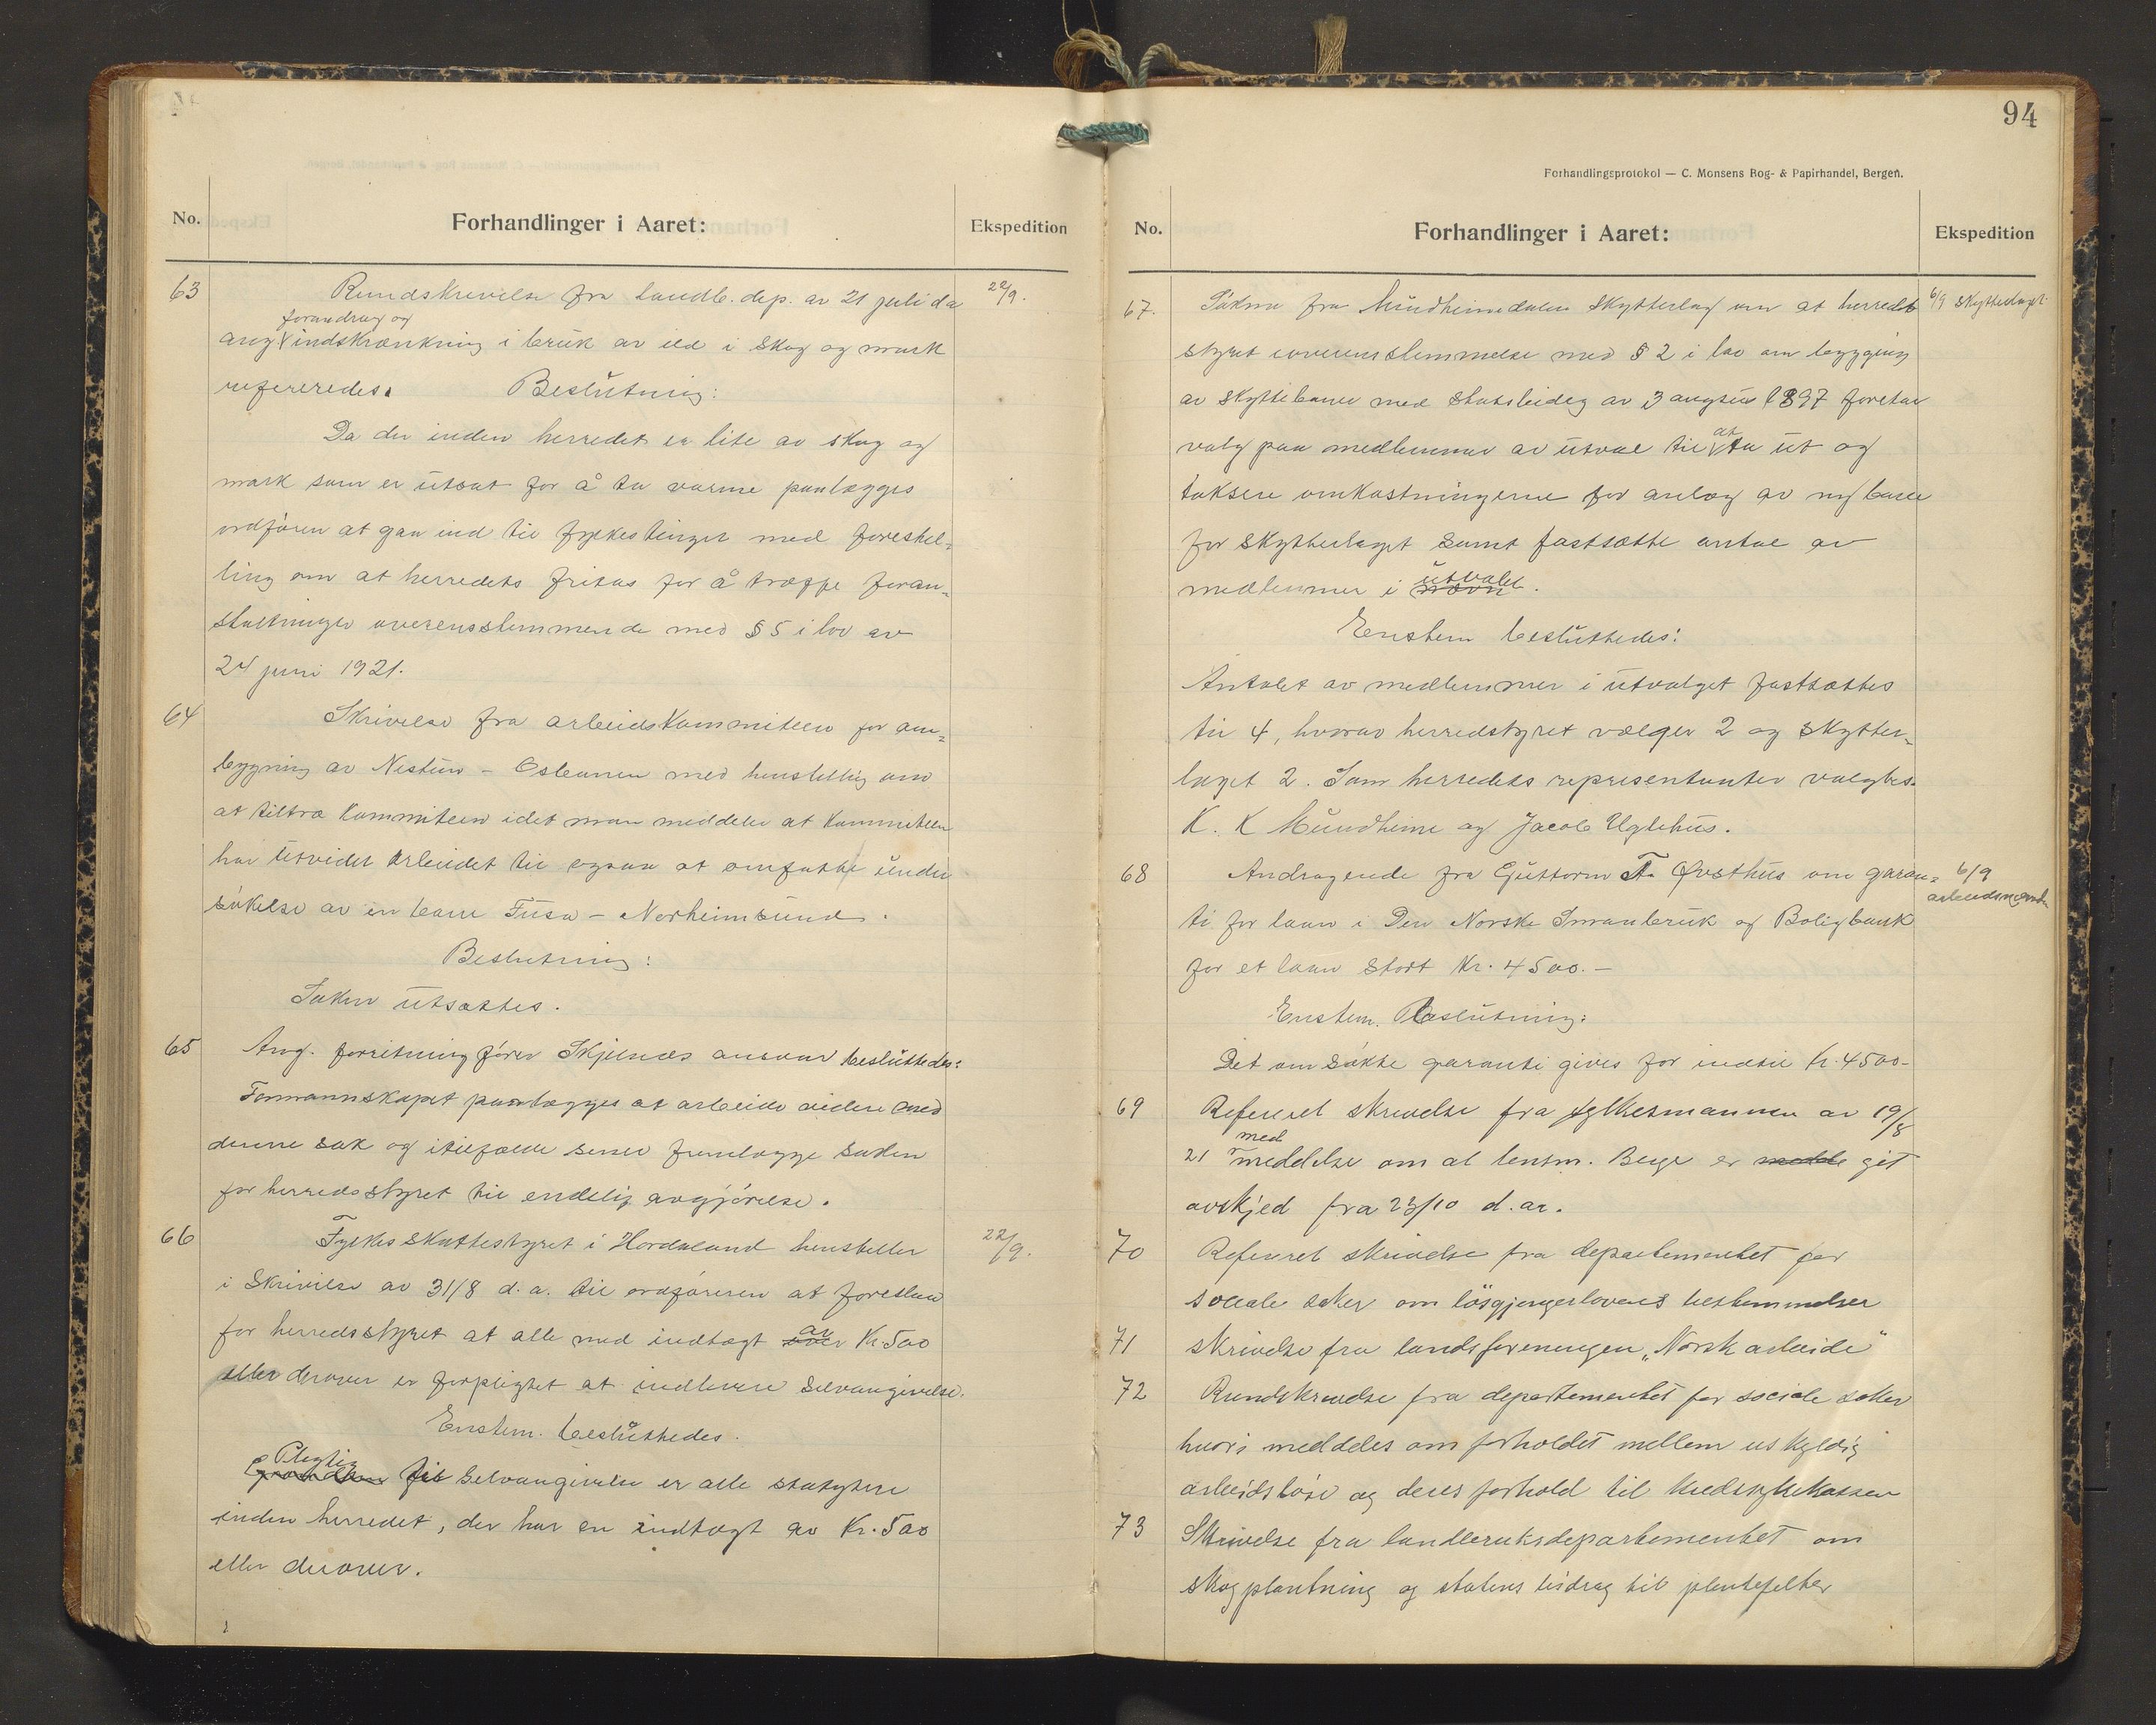 No.
Forhandlinger i Aaret:
Ekspedition
63
Rundskrivelse fra Landb. dep. av 21 juli da
22/9.
forandring og
ang indskrænkning i bruk av ild i skog og mark
refereredes.
Beslutning:
Da der inden herredet er lite av skog og
mark som er utsat for å ta varme paalægges
ordføren at gaa ind til fylkestinget med forestel-
ling om at herredets fritas for å træffe foran-
staltninger overensstemmende med § 5 i lov av
24 juni 1921.
64
Skrivelse fra arbeidskommiteen for om-
bygning av Nestun - Osbanen med henstilling om
at tiltræ kommiteen idet man meddeler at kommiteen
har utvidet arbeidet til ogsaa at omfatte under
søkelse av en bane Fusa - Norheimsund.
Beslutning:
Saken utsattes.
65
Ang. forretningsfører Skjelnæs ansvar besluttedes:
Formannskapet paalægges at arbeide videre med
denne sak og i tilfælde senere fremlægge saken
for herredsstyret til endelig avgjørelse.
66
Fylkesskattestyret i Hordaland henstiller
22/9.
i skrivelse av 31/8 d. a. til ordføreren at foreslaa
av
for herredsstyret at alle med indtægt over Kr. 500
eller derover er forpligtet at indlevere selvangivelse.
Enstem. besluttedes.
Pligtig
til selvangivelse er alle skatytere
inden herredet, der har en indtægt av Kr. 500
eller derover.
94
Forhandlingsprotokol — C. Monsens Bog- & Papirhandel, Bergen.
No.
Forhandlinger i Aaret:
Ekspedition
67.
Søkna fra Mundheimsdalen Skytterlag om at herreds
6/9 Skytterlaget
styret i overensstemmelse med § 2 i lov om bygging
av skyttebaner med statsbidrag av 3 august 1897 foretar
at
valg paa medlemmer av utval til ta ut og
taksere omkostningerne for anlæg av ny bane
for skytterlaget samt fastsætte antal av
utvalet
medlemmer i nævn.
Enstem besluttedes:
Antalet av medlemmer i utvalget fastsættes
til 4, hvorav herredstyret vælger 2 og skytter-
laget 2. Som herredets representanter valgtes
K. K Mundheim og Jacob Uglehus.
68
Andragende fra Guttorm T. Øvsthus om garan-
6/9
arbeidsnævnden
ti for laan i Den Norske Smaabruk og Boligbank
for et laan stort Kr. 4500.-
Enstem. Beslutning:
Det om søkte garanti gives for indtil kr. 4500-
69
Referert skrivelse fra fylkesmannen av 19/8
med
21 meddelse om at lensm. Berge er medde git
avskjed fra 23/10 d. ar.
70
Referert skrivelse fra departementet for
sociale saker om løsgjengerlovens bestemmelser
71
skrivelse fra landsforeningen "Norsk arbeide"
72
Rundskrivelse fra departementet for sociale saker
hvori meddeles om forholdet mellem uskyldig
arbeidsløse og deres forhold til kredssykekassen
73
Skrivelse fra landbruksdepartementet om
skogplantning og statens bidrag til plantefelter